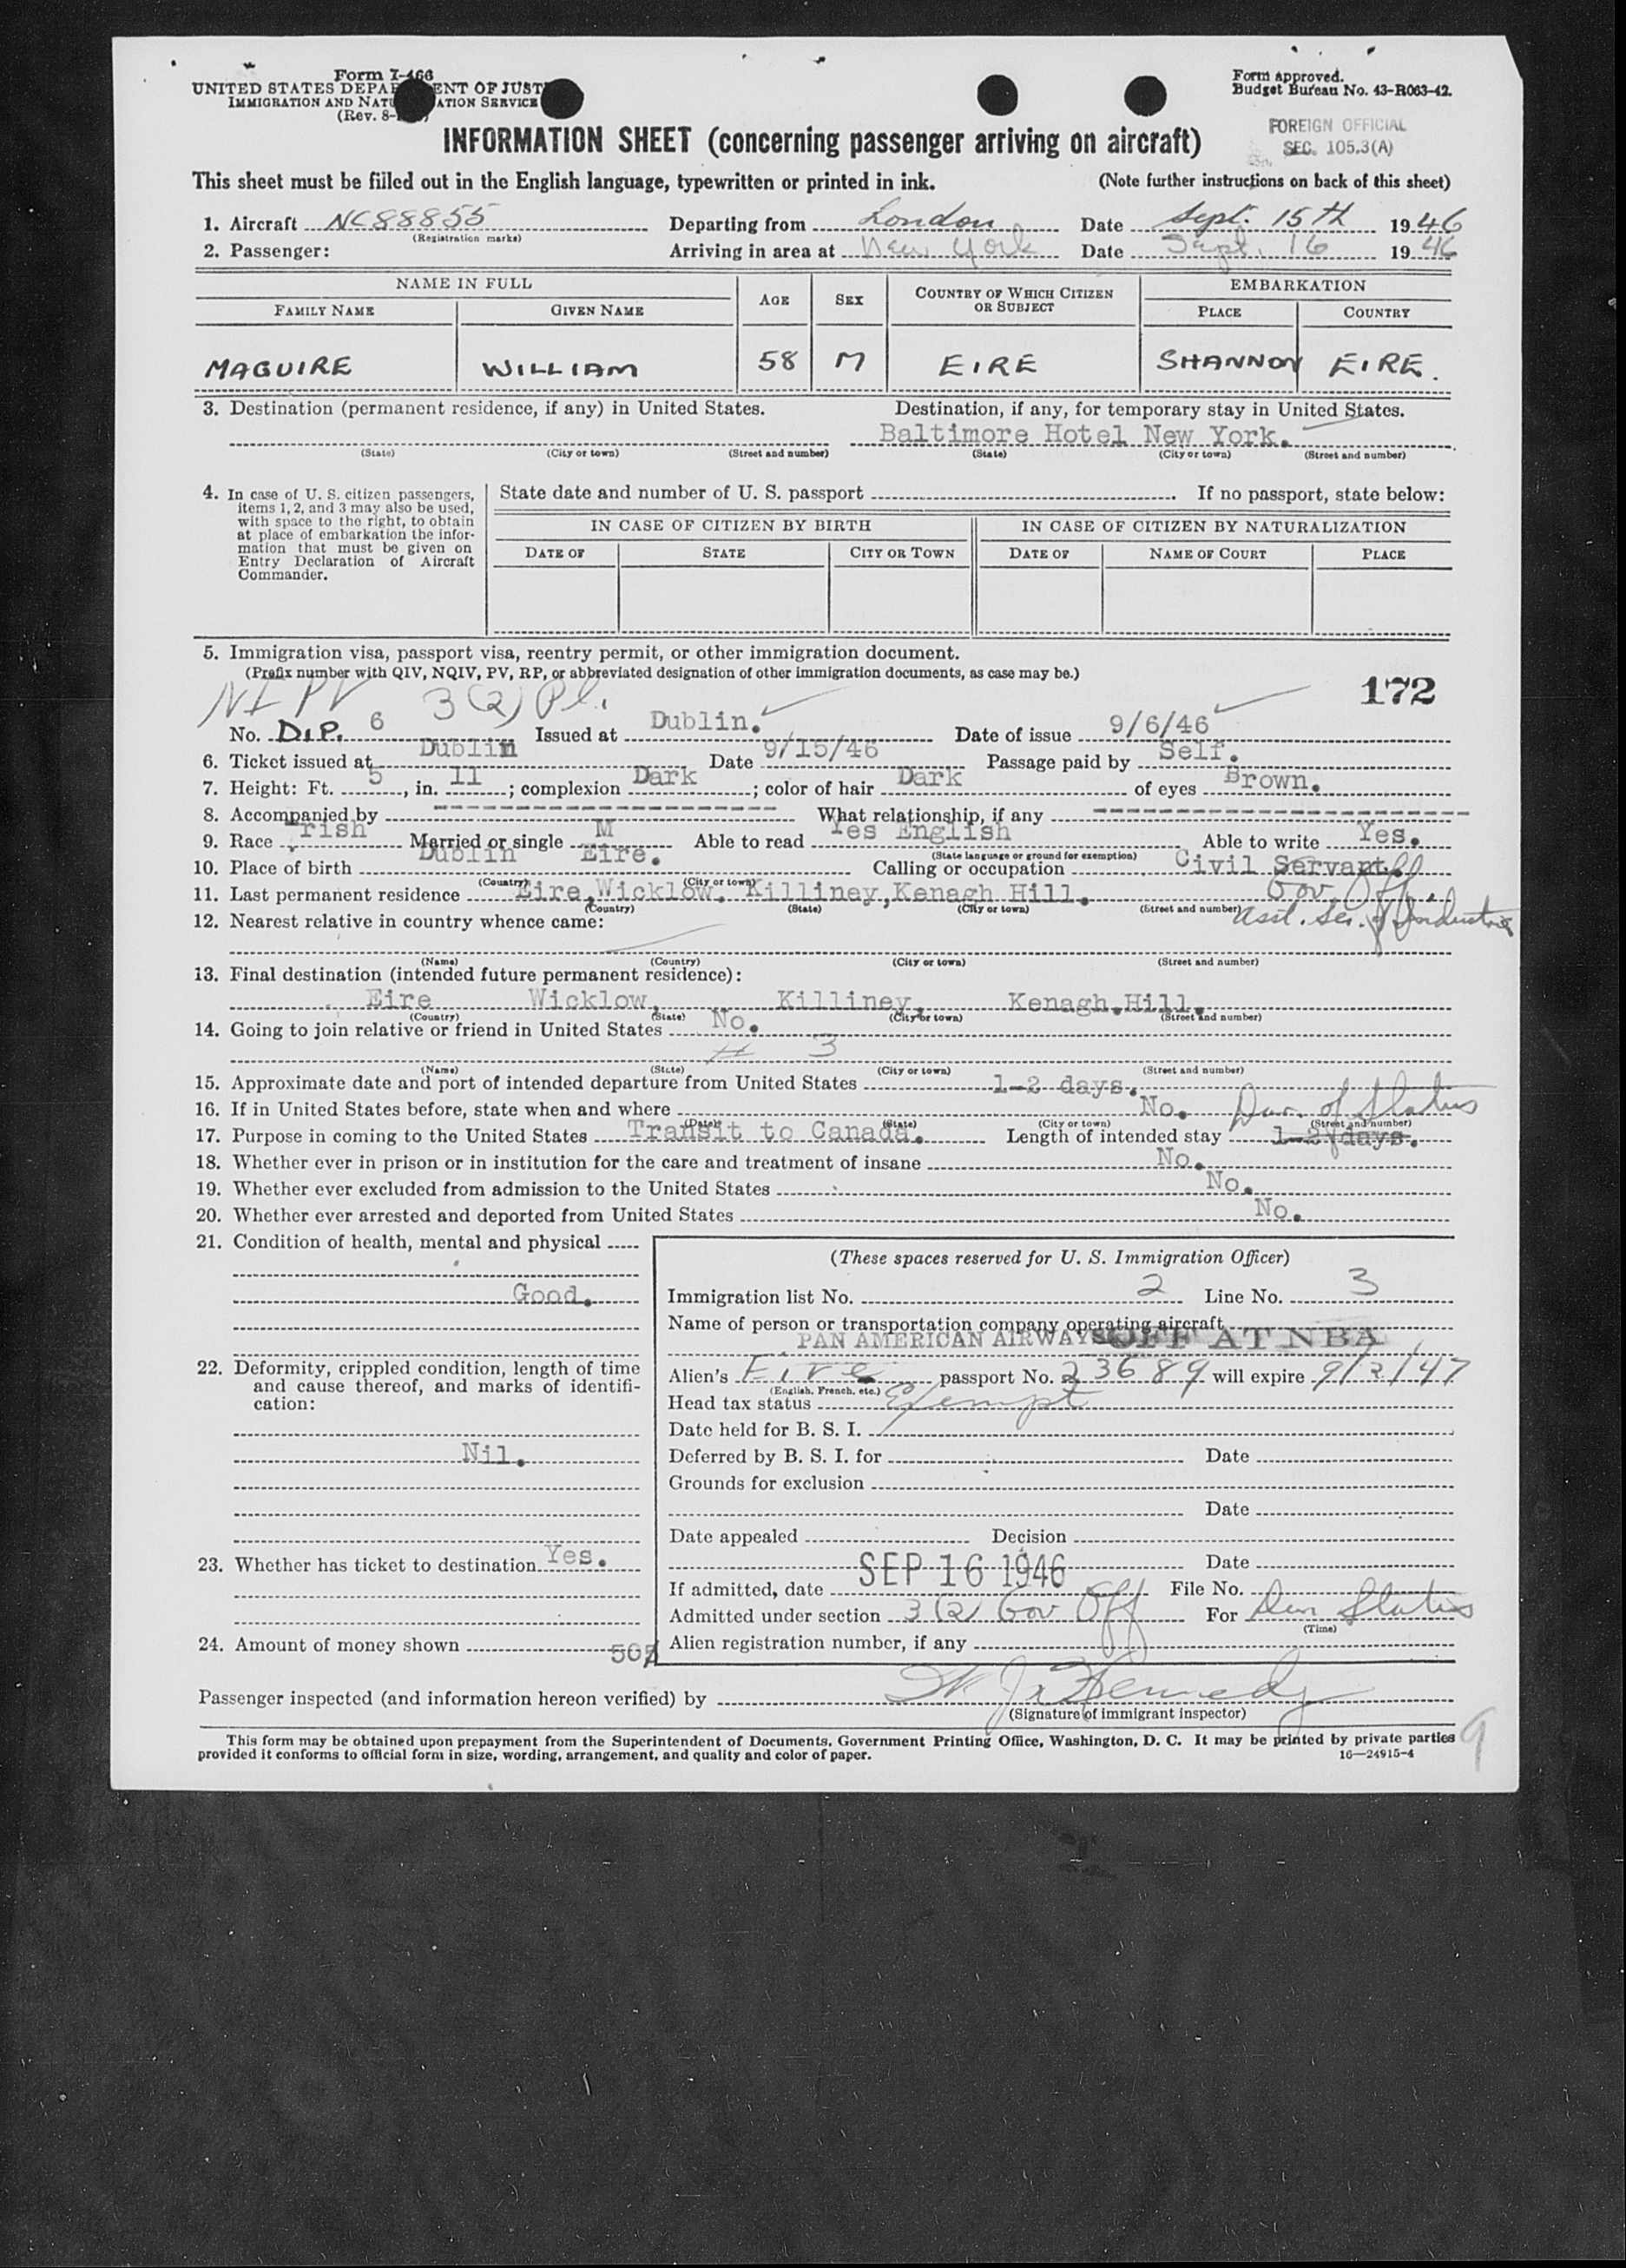 Form I-466
UNITED STATES DEPA ENT OF JUST
IMMIGRATION AND NATU ATION SERVICE
(Rev. 8-
Form approved.
Budget Bureau No. 43-R063-42.
INFORMATION SHEET (concerning passenger arriving on aircraft)
FOREIGN OFFICIAL
SEC. 105.3(A)
This sheet must be filled out in the English language, typewritten or printed in ink. (Note further instructions on back of this sheet)
1. Aircraft NC88855 Departing from London Date Sept. 15th 1946
(Registration marks)
2. Passenger: Arriving in area at New York Date Sept. 16 1946
NAME IN FULL AGE SEX COUNTRY OF WHICH CITIZEN OR SUBJECT EMBARKATION
FAMILY NAME GIVEN NAME PLACE COUNTRY
MAGUIRE WILLIAM 58 M EIRE SHANNON EIRE.
3. Destination (permanent residence, if any) in United States. Destination, if any, for temporary stay in United States.
Baltimore Hotel New York.
(State) (City or town) (Street and number) (State) (City or town) (Street and number)
4. In case of U. S. citizen passengers, items 1, 2, and 3 may also be used, with space to the right, to obtain at place of embarkation the information that must be given on Entry Declaration of Aircraft Commander.
State date and number of U. S. passport If no passport, state below:
IN CASE OF CITIZEN BY BIRTH IN CASE OF CITIZEN BY NATURALIZATION
DATE OF STATE CITY OR TOWN DATE OF NAME OF COURT PLACE
5. Immigration visa, passport visa, reentry permit, or other immigration document.
(Prefix number with QIV, NQIV, PV, RP, or abbreviated designation of other immigration documents, as case may be.)
172
NI PV 3(2) Pl.
No. DIP. 6 Issued at Dublin. Date of issue 9/6/46
6. Ticket issued at Dublin Date 9/15/46 Passage paid by Self.
7. Height: Ft. 5, in. 11; complexion Dark; color of hair Dark of eyes Brown.
8. Accompanied by ---- What relationship, if any ----
9. Race Irish Married or single M Able to read Yes English Able to write Yes.
(State language or ground for exemption)
10. Place of birth Dublin Eire. Calling or occupation Civil Servant
(Country) (City or town)
Gov Off.
11. Last permanent residence Eire, Wicklow. Killiney, Kenagh Hill.
(Country) (State) (City or town) (Street and number)
Asst. Sec. of Industries
12. Nearest relative in country whence came:
(Name) (Country) (City or town) (Street and number)
13. Final destination (intended future permanent residence):
Eire Wicklow, Killiney, Kenagh Hill.
(Country) (State) (City or town) (Street and number)
14. Going to join relative or friend in United States No.
# 3
(Name) (State) (City or town) (Street and number)
15. Approximate date and port of intended departure from United States 1-2 days.
16. If in United States before, state when and where No.
(Date) (State) (City or town) (Street and number)
Dur. of Status
17. Purpose in coming to the United States Transit to Canada. Length of intended stay 1-2 days.
18. Whether ever in prison or in institution for the care and treatment of insane No.
19. Whether ever excluded from admission to the United States No.
20. Whether ever arrested and deported from United States No.
21. Condition of health, mental and physical
Good.
22. Deformity, crippled condition, length of time and cause thereof, and marks of identification:
Nil.
23. Whether has ticket to destination Yes.
24. Amount of money shown
(These spaces reserved for U. S. Immigration Officer)
Immigration list No. 2 Line No. 3
Name of person or transportation company operating aircraft
PAN AMERICAN AIRWAYS OFF AT NBA
Alien's Eire passport No. 23689 will expire 9/2/47
(English, French, etc.)
Head tax status Exempt
Date held for B. S. I.
Deferred by B. S. I. for Date
Grounds for exclusion
Date
Date appealed Decision
Date
If admitted, date SEP 16 1946 File No.
Admitted under section 3 (2) Gov Off For Dur Status
(Time)
Alien registration number, if any
Passenger inspected (and information hereon verified) by Kennedy
(Signature of immigrant inspector)
This form may be obtained upon prepayment from the Superintendent of Documents, Government Printing Office, Washington, D. C. It may be printed by private parties
provided it conforms to official form in size, wording, arrangement, and quality and color of paper. 16—24915-4
9